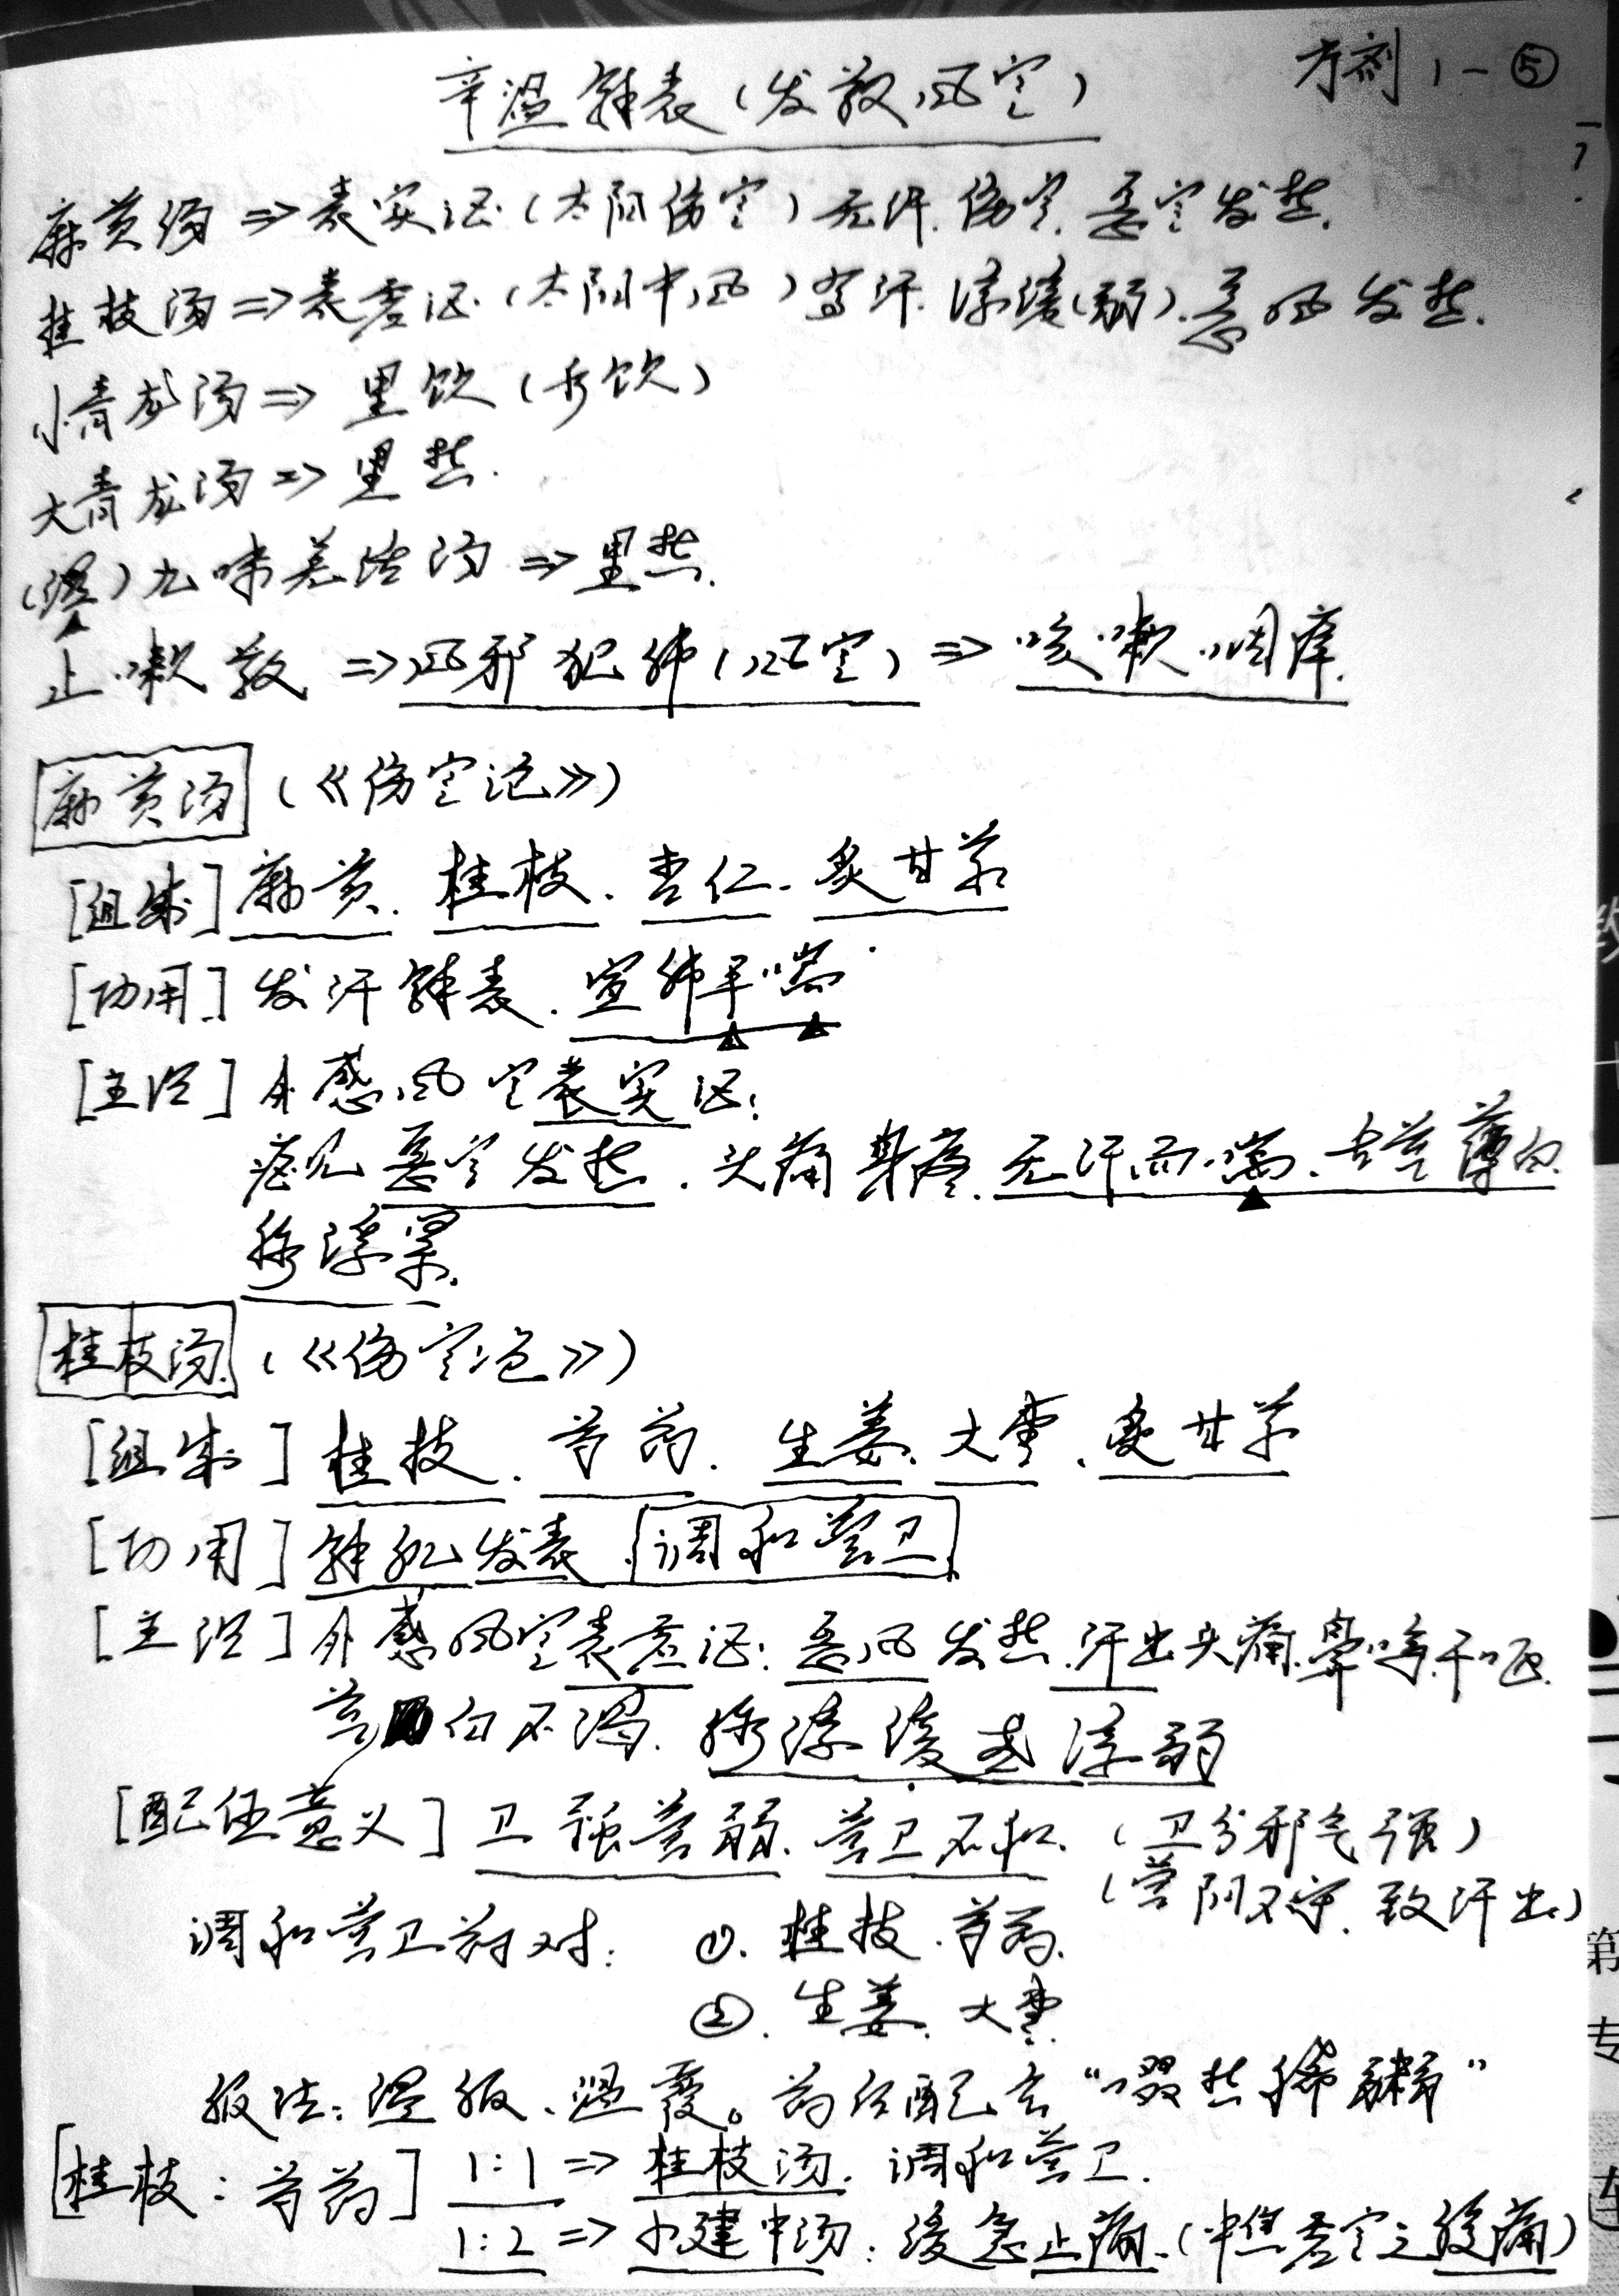 方剂 1-⑤
辛温解表(发散风寒)
麻黄汤⇒表实证(太阳伤寒)无汗.伤寒.恶寒发热.
桂枝汤⇒表虚证(太阳中风)有汗.浮缓(弱).恶风发热.
小青龙汤⇒里饮(水饮)
大青龙汤⇒里热.
(湿)九味羌活汤⇒里热.
止嗽散⇒风邪犯肺(风寒)⇒咳嗽咽痒.
麻黄汤(《伤寒论》)
[组成]麻黄.桂枝.杏仁.炙甘草
[功用]发汗解表.宣肺平喘.
[主治]外感风寒表实证:
症见恶寒发热.头痛身疼.无汗而喘.舌苔薄白.
脉浮紧.
桂枝汤(《伤寒论》)
[组成]桂枝.芍药.生姜.大枣.炙甘草
[功用]解肌发表.调和营卫.
[主治]外感风寒表虚证:恶风发热.汗出头痛.鼻鸣.干呕.
苔白不渴.脉浮缓或浮弱
[配伍意义]卫强营弱.营卫不和.(卫分邪气强)
(营阴不守.致汗出)
调和营卫药对: ①.桂枝.芍药.
②.生姜.大枣.
服法:温服、温覆。药后配之"啜热稀粥"
[桂枝:芍药]1:1⇒桂枝汤.调和营卫.
1:2⇒小建中汤:缓急止痛.(中焦虚寒之腹痛)